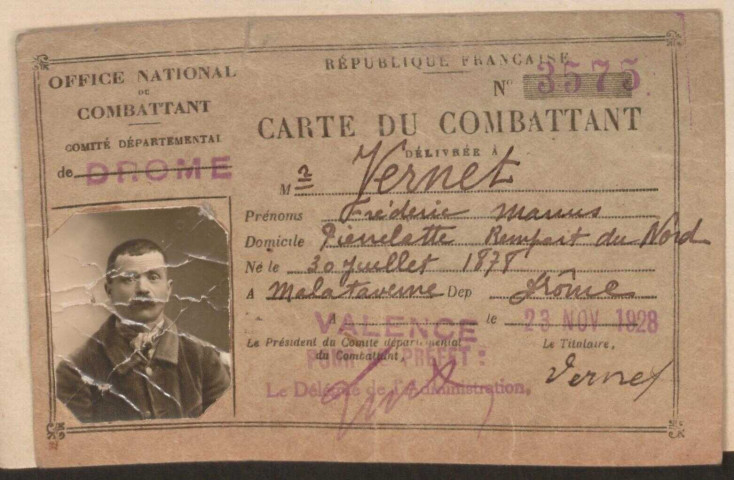 OFFICE NATIONAL
DU
COMBATTANT
COMITÉ DÉPARTEMENTAL
de DROME
RÉPUBLIQUE FRANÇAISE
N° 3575
CARTE DU COMBATTANT
DÉLIVRÉE À
M r Vernet
Prénoms Fréderic Marius
Domicile Pierrelatte Rempart du Nord
Né le 30 Juillet 1878
A Malataverne Dep Drôme
A VALENCE le 23 NOV 1928
Le Président du Comité départemental
du Combattant,
POUR LE PREFET :
Le Délégué de l'Administration,
Le Titulaire,
Vernet